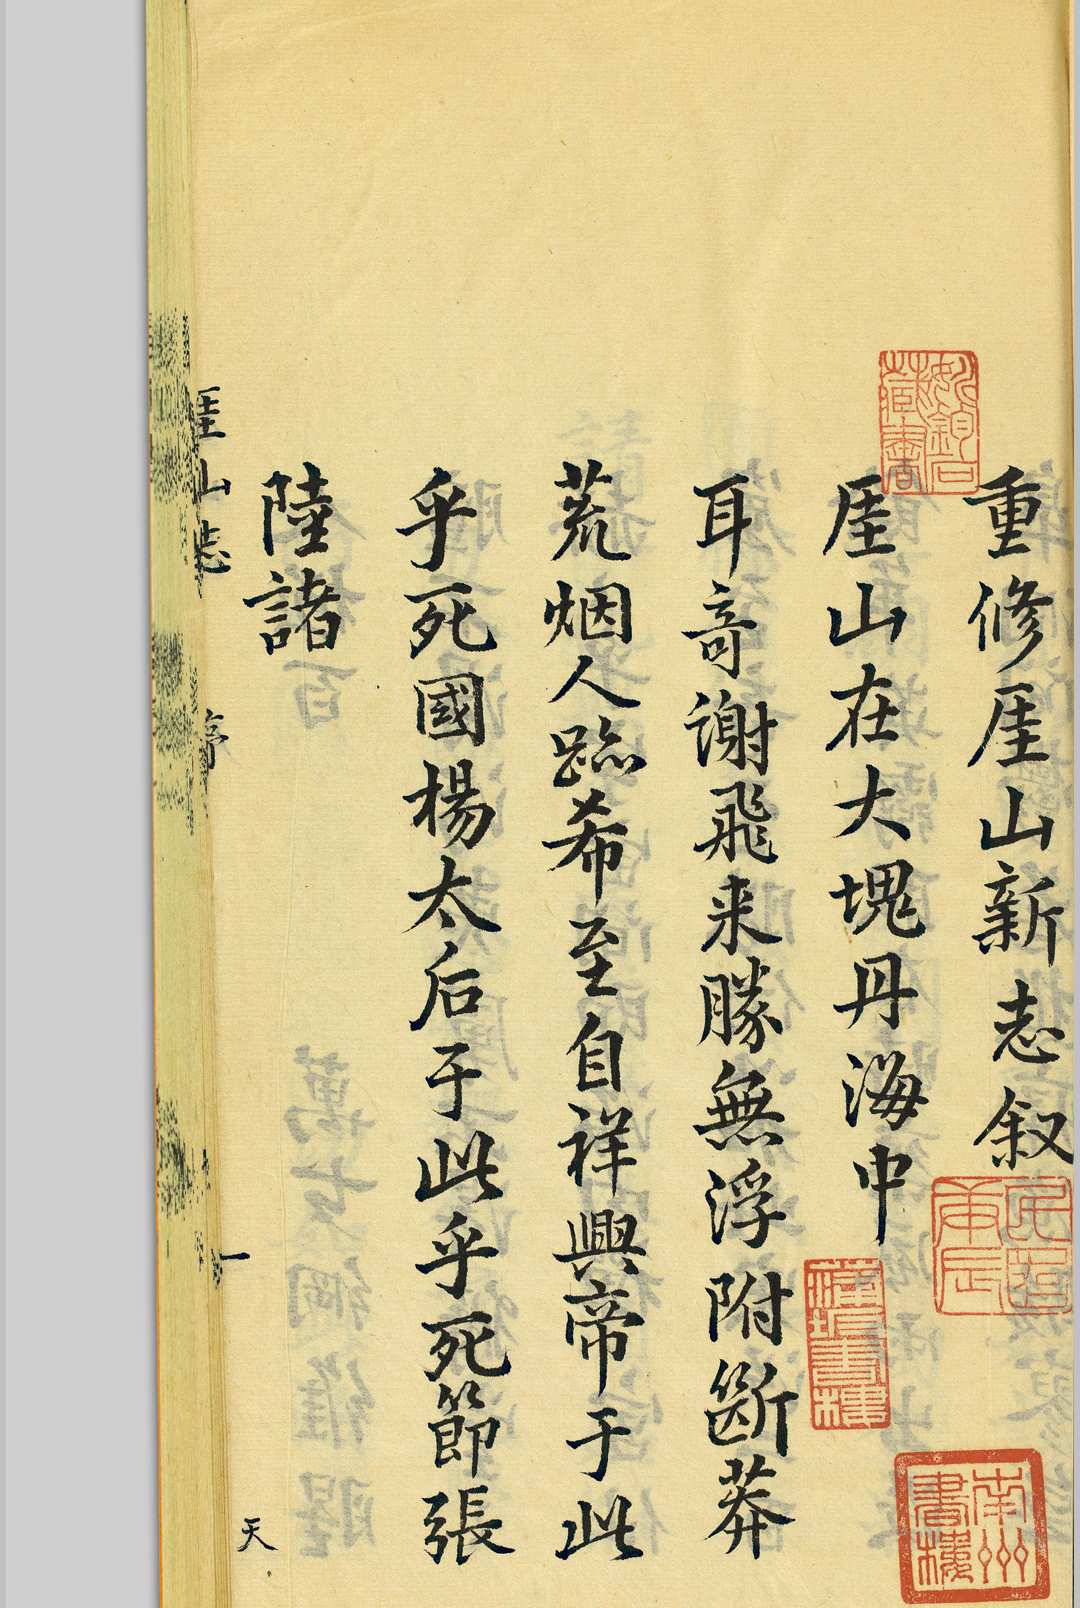 重修厓山新志叙
厓山在大塊丹海中
耳奇谢飛来勝無浮附斷莽
荒烟人跡希至自祥興帝于此
乎死國楊太后于此乎死節張
陸諸
厓山志
序
一
天
南州書樓